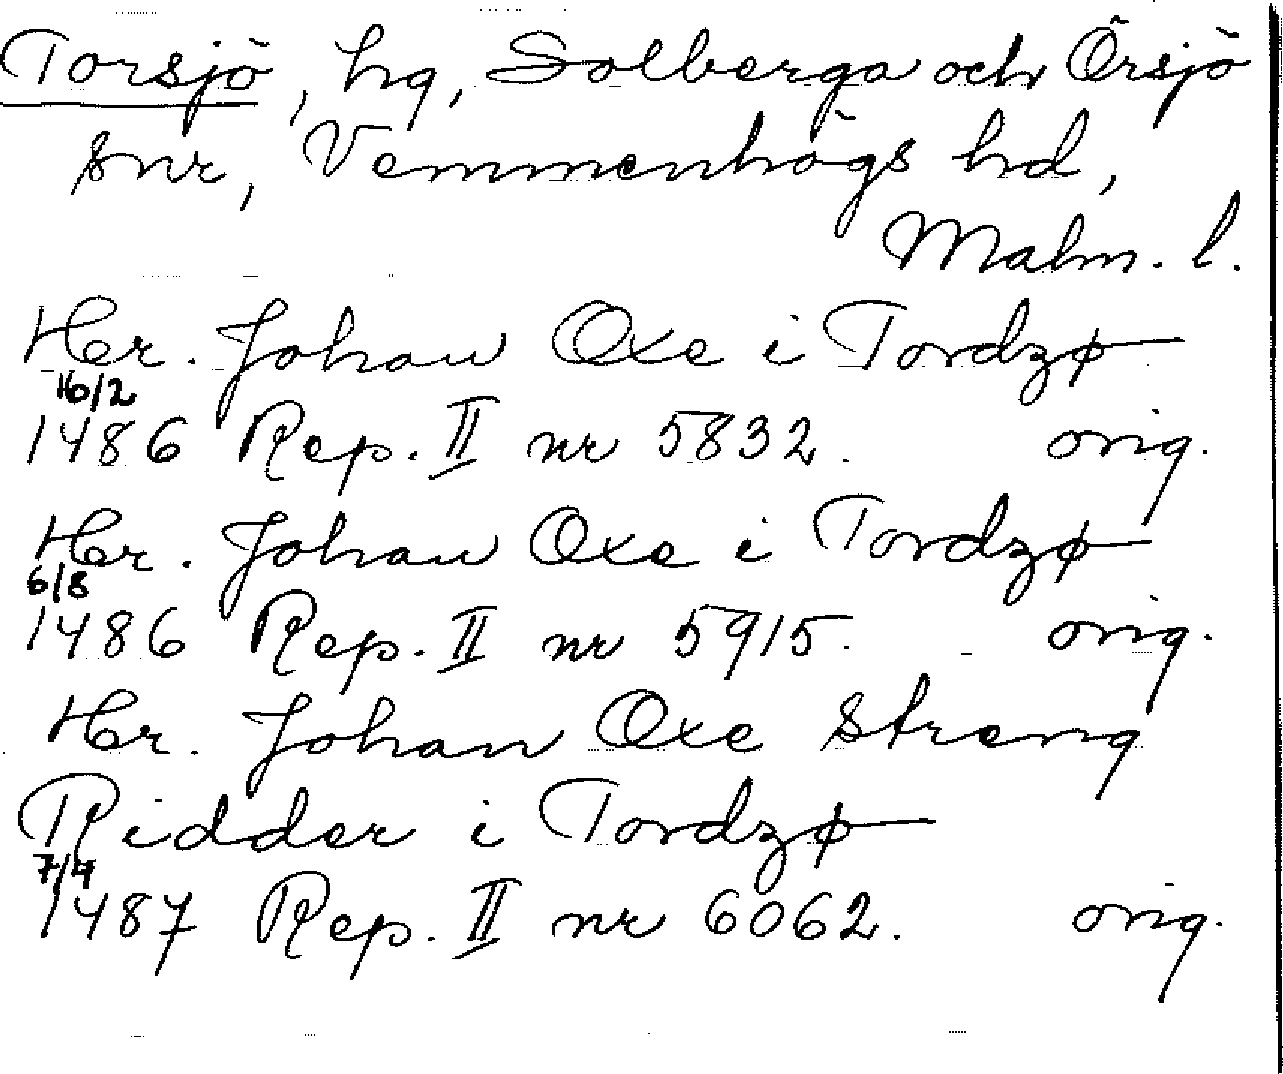 Torsjö, hg, Solberga och Örsjö
snr, Vemmenhögs hd,
Malm. l.
Her. Johan Oxe i Tordzø
16/2
1486 Rep. II nr 5832. orig.
Her. Johan Oxe i Tordzø
6/8
1486 Rep. II nr 5915. orig.
Her. Johan Oxe streng
Ridder i Tordzø
7/4
1487 Rep. II nr 6062. orig.